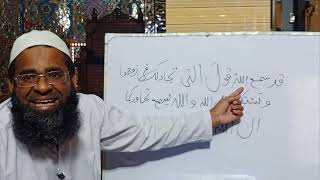 قد سمع الله قولَ التي تجادلك في زوجها
وتشتكي الله والله يسمع تحاوركما
ان الله